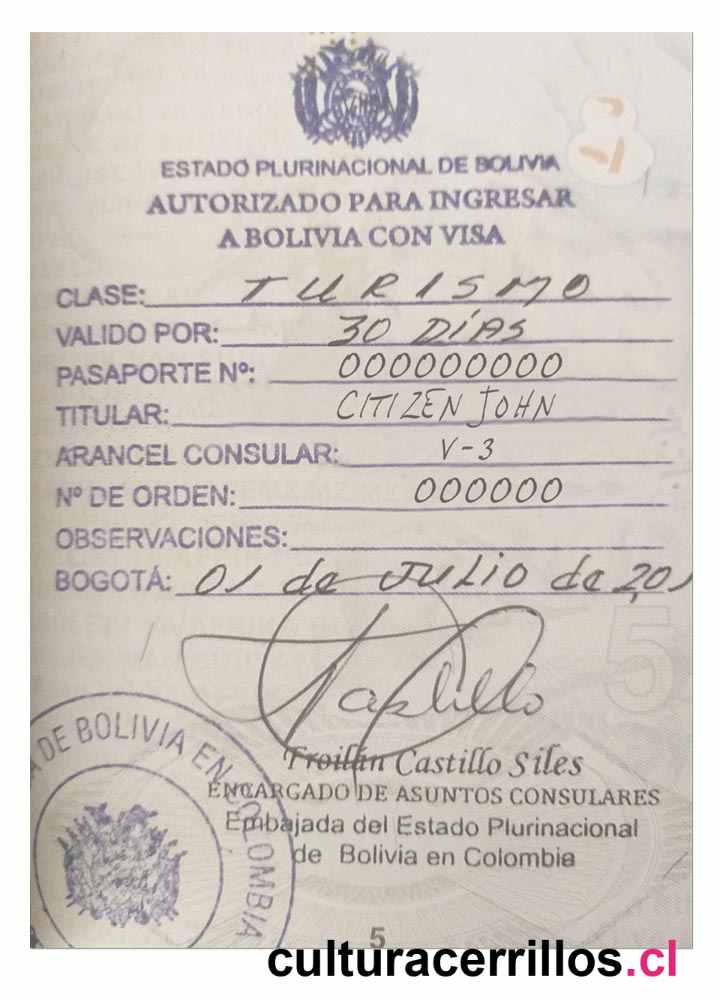 ESTADO PLURINACIONAL DE BOLIVIA
AUTORIZADO PARA INGRESAR
A BOLIVIA CON VISA
CLASE: TURISMO
VALIDO POR: 30 DÍAS
PASAPORTE Nº: 000000000
TITULAR: CITIZEN JOHN
ARANCEL CONSULAR: V-3
Nº DE ORDEN: 000000
OBSERVACIONES:
BOGOTÁ: 01 de JULIO de 201
Castillo
Troilán Castillo Siles
ENCARGADO DE ASUNTOS CONSULARES
Embajada del Estado Plurinacional
de Bolivia en Colombia
DE BOLIVIA EN COLOMBIA
5
5
culturacerrillos.cl